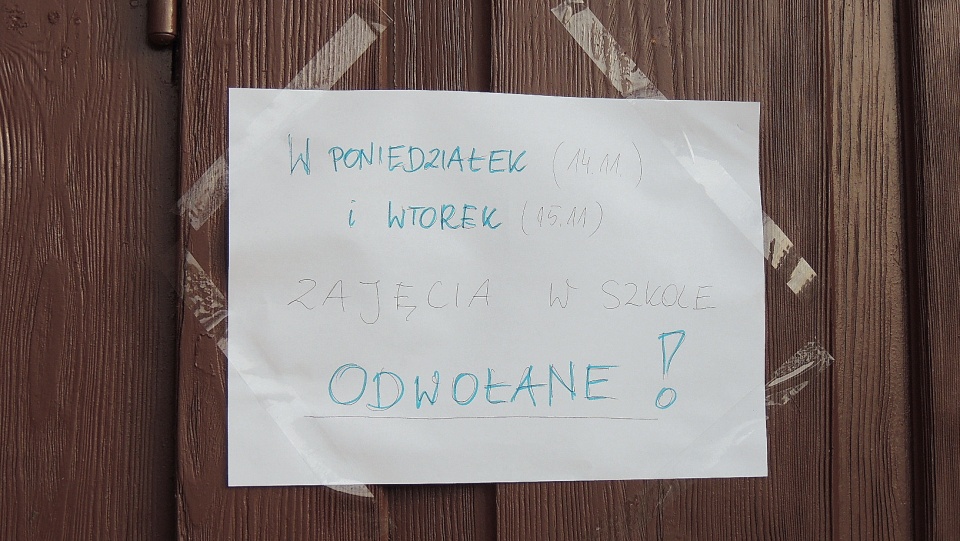 W PONIEDZIAŁEK (14.11.)
i WTOREK (15.11)
ZAJĘCIA W SZKOLE
ODWOŁANE!